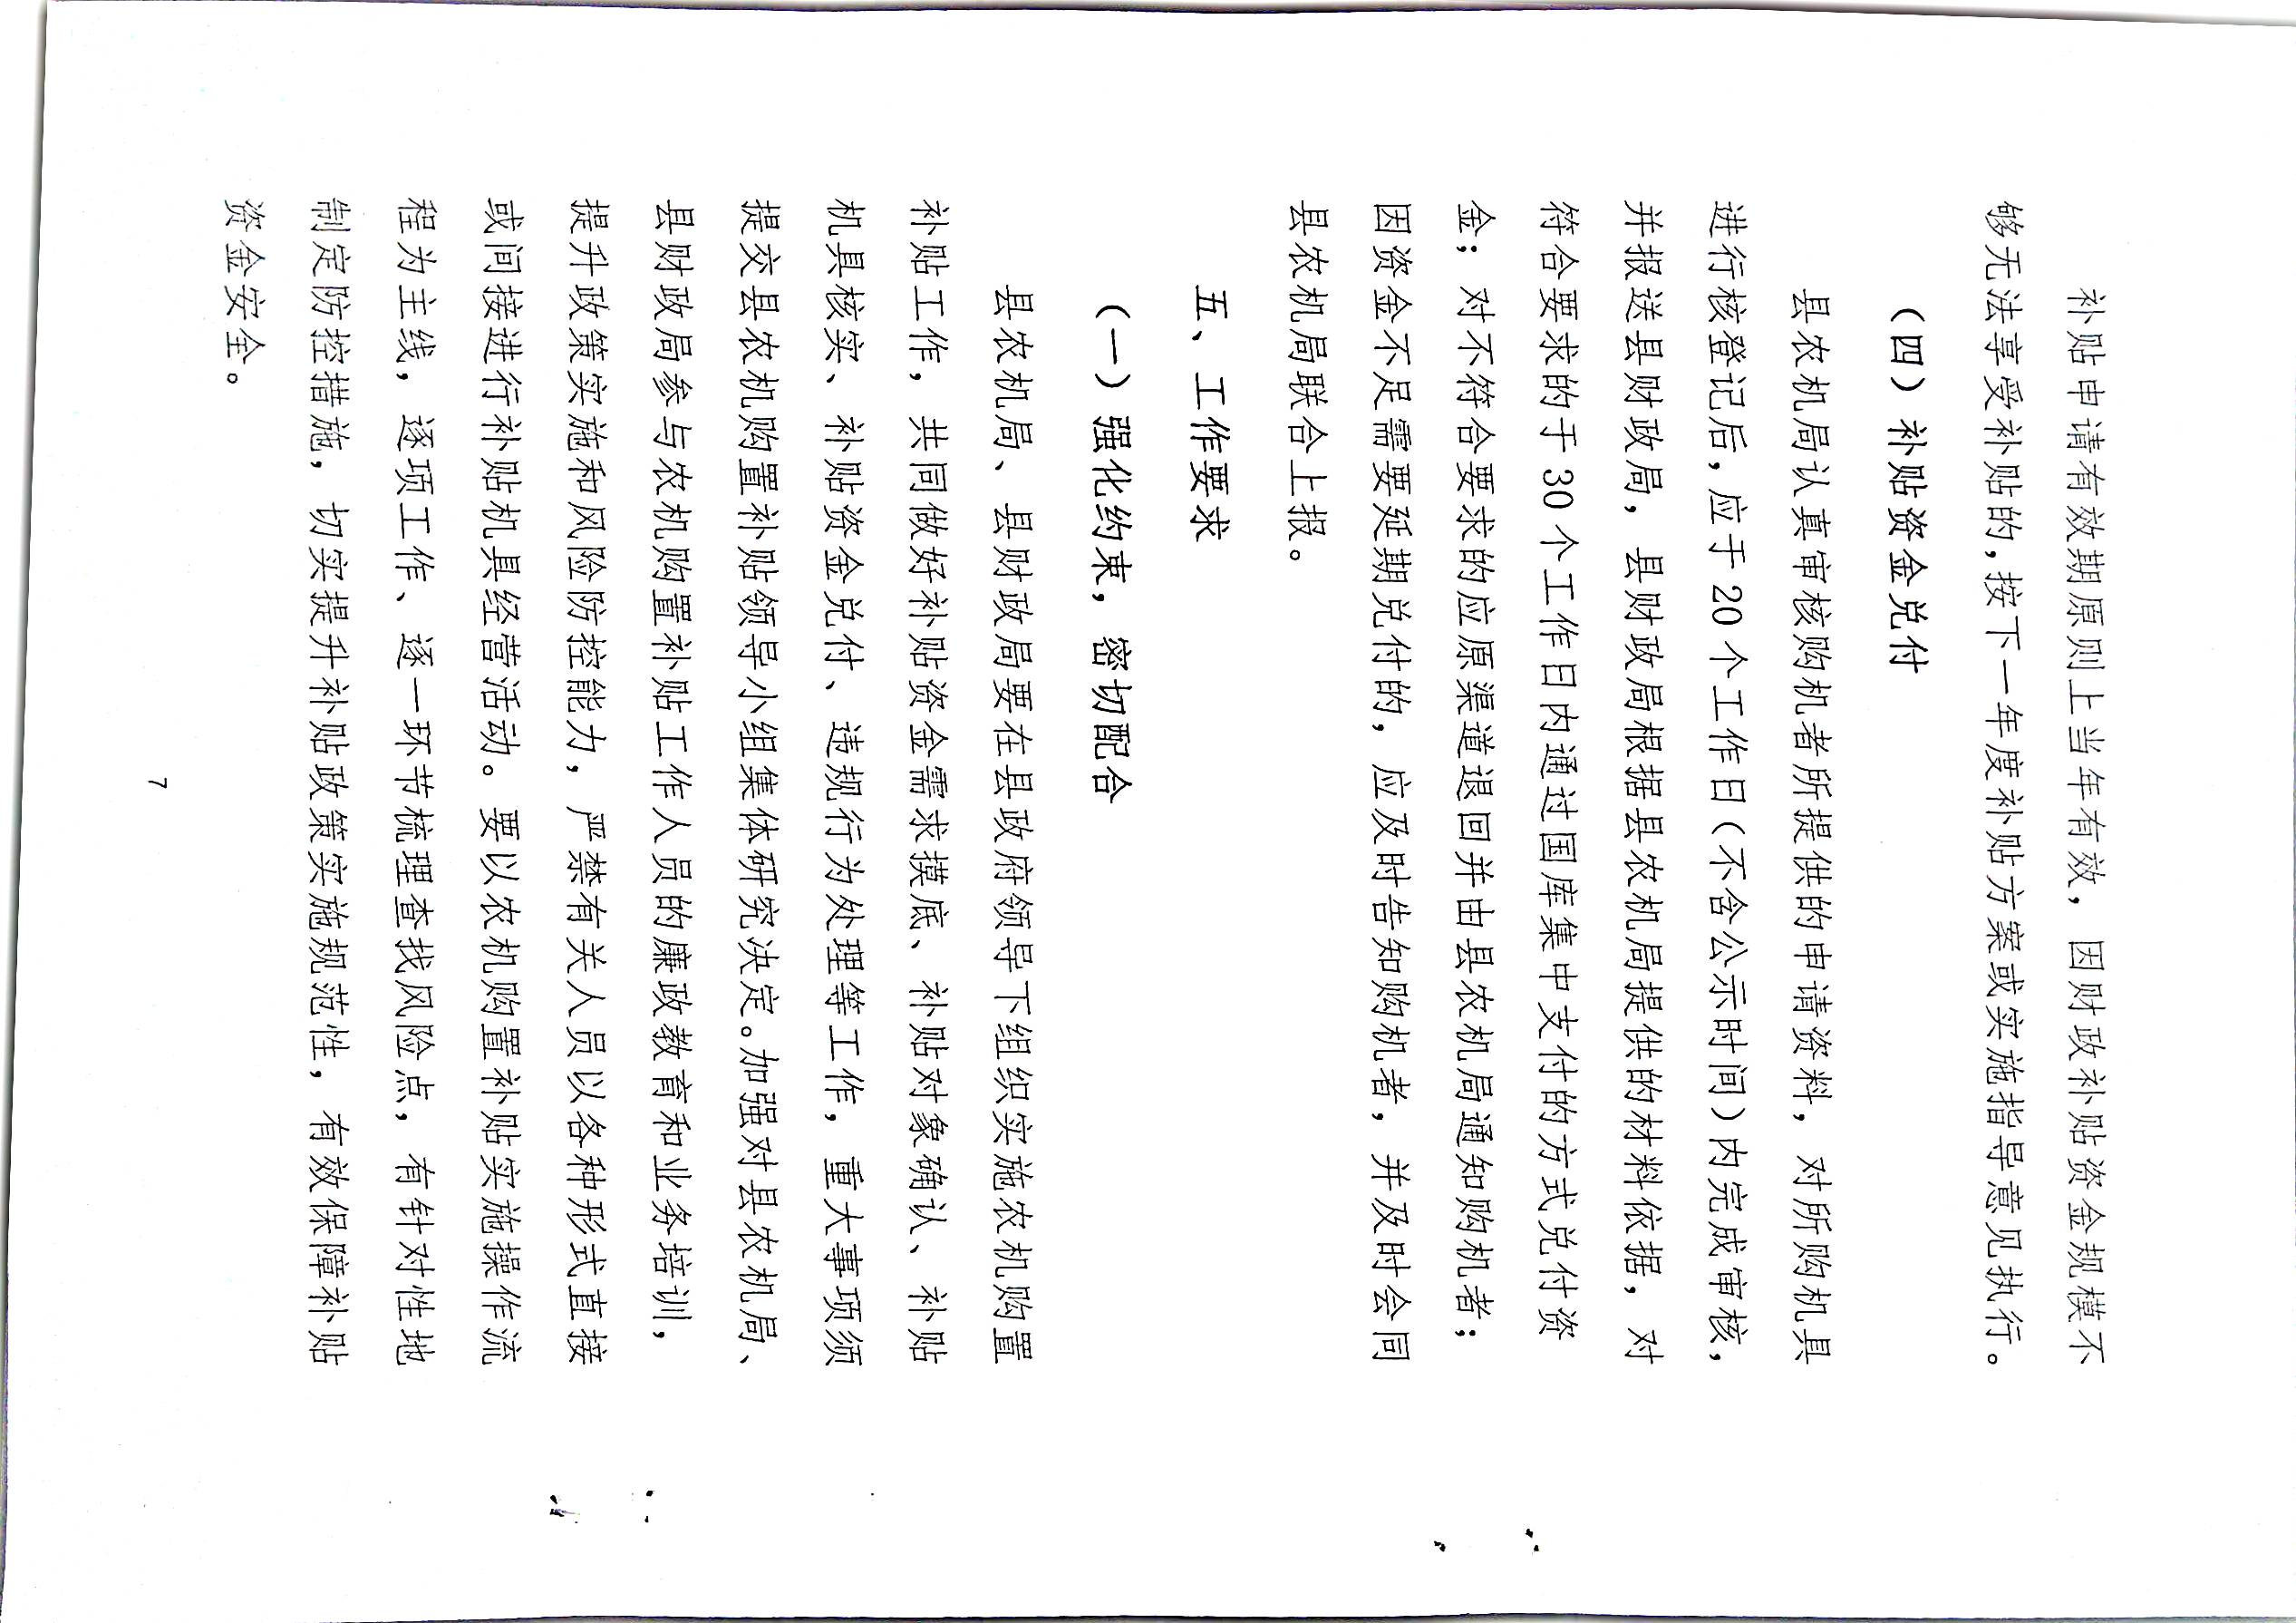 补贴申请有效期原则上当年有效，因财政补贴资金规模不
够无法享受补贴的，按下一年度补贴方案或实施指导意见执行。
（四）补贴资金兑付
县农机局认真审核购机者所提供的申请资料，对所购机具
进行核登记后，应于 20 个工作日（不含公示时间）内完成审核，
并报送县财政局，县财政局根据县农机局提供的材料依据，对
符合要求的于 30 个工作日内通过国库集中支付的方式兑付资
金；对不符合要求的应原渠道退回并由县农机局通知购机者；
因资金不足需要延期兑付的，应及时告知购机者，并及时会同
县农机局联合上报。
五、工作要求
（一）强化约束，密切配合
县农机局、县财政局要在县政府领导下组织实施农机购置
补贴工作，共同做好补贴资金需求摸底、补贴对象确认、补贴
机具核实、补贴资金兑付、违规行为处理等工作，重大事项须
提交县农机购置补贴领导小组集体研究决定。加强对县农机局、
县财政局参与农机购置补贴工作人员的廉政教育和业务培训，
提升政策实施和风险防控能力，严禁有关人员以各种形式直接
或间接进行补贴机具经营活动。要以农机购置补贴实施操作流
程为主线，逐项工作、逐一环节梳理查找风险点，有针对性地
制定防控措施，切实提升补贴政策实施规范性，有效保障补贴
资金安全。
7